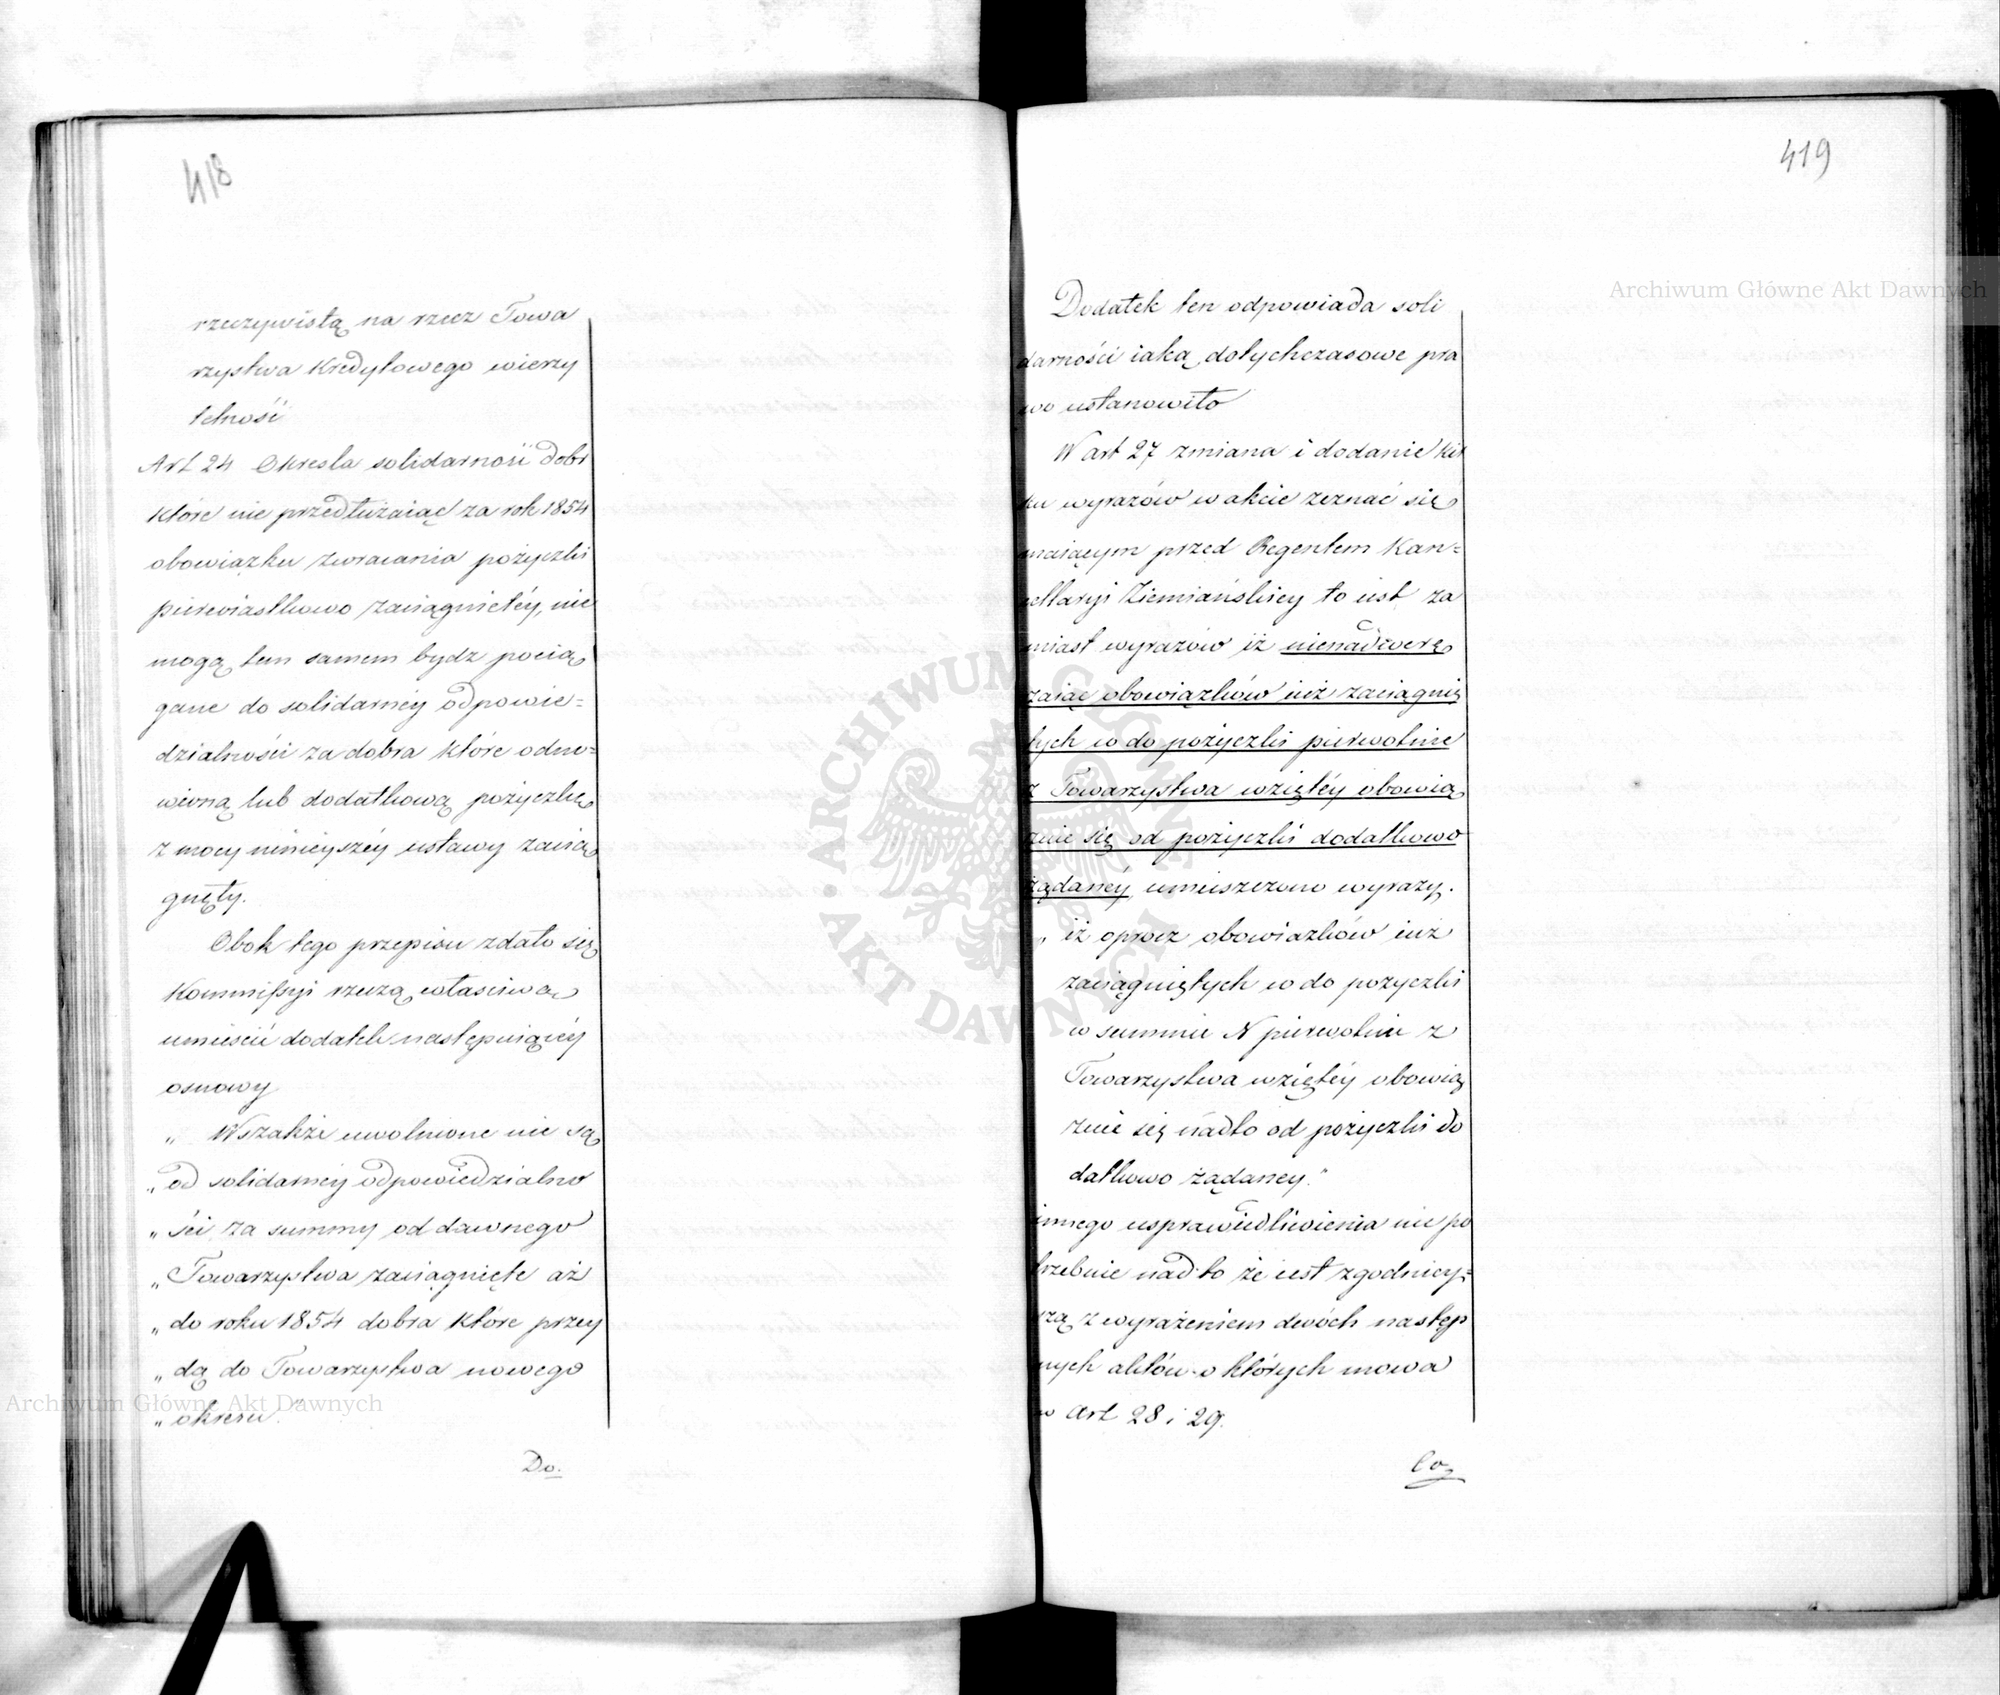 418
rzeczywistą na rzecz Towa
rzystwa Kredytowego wierzy
telność
Art 24 Okresla solidarność dobr
które nie przedłużaiąc za rok 1854
obowiązku zwracania pożyczki
pierwiastkowo zaciągniętéy, nie
mogą tem samem bydz pocią
gane do solidarnéy odpowie=
dzialności za dobra które odno=
wioną lub dodatkową pożyczkę
z mocy ninieyszéy ustawy zacią
gnęły.
Obok tego przepisu zdało się
Kommissyi rzeczą właściwą
umieścić dodatek następuiącéy
osnowy
„ Wszakże uwolnione nie są
„ od solidarnéy odpowiedzialno
„ ści za summy od dawnego
„ Towarzystwa zaciągnięte aż
„ do roku 1854 dobra które przey
„ dą do Towarzystwa nowego
„ okresu."
Do.
419
Dodatek ten odpowiada soli
darności iaką dotychczasowe pra
wo ustanowiło
W art 27 zmiana i dodanie kil
ku wyrazów w akcie zeznać się
maiącym przed Regentem Kan=
cellaryi Ziemiańskiey to iest za
miast wyrazów iż nienadwerę
żaiąc obowiązków iuż zaciągnię
tych w do pożyczki pierwotnie
z Towarzystwa wziętéy obowią
zuie się od pożyczki dodatkowo
żądanéy umieszczono wyrazy.
„ iż oprocz obowiazków iuż
zaciągniętych w do pożyczki
w summie N pierwotnie z
Towarzystwa wziętéy obowią
zuie się nadto od pożyczki do
datkowo żądaney."
innego usprawiedliwienia nie po
trzebuie nadto że iest zgodniey=
szą z wyrażeniem dwóch następ
nych aktów o których mowa
w Art 28 i 29.
Co
Archiwum Główne Akt Dawnych
Archiwum Główne Akt Dawnych
ARCHIWUM GŁÓWNE
AKT DAWNYCH